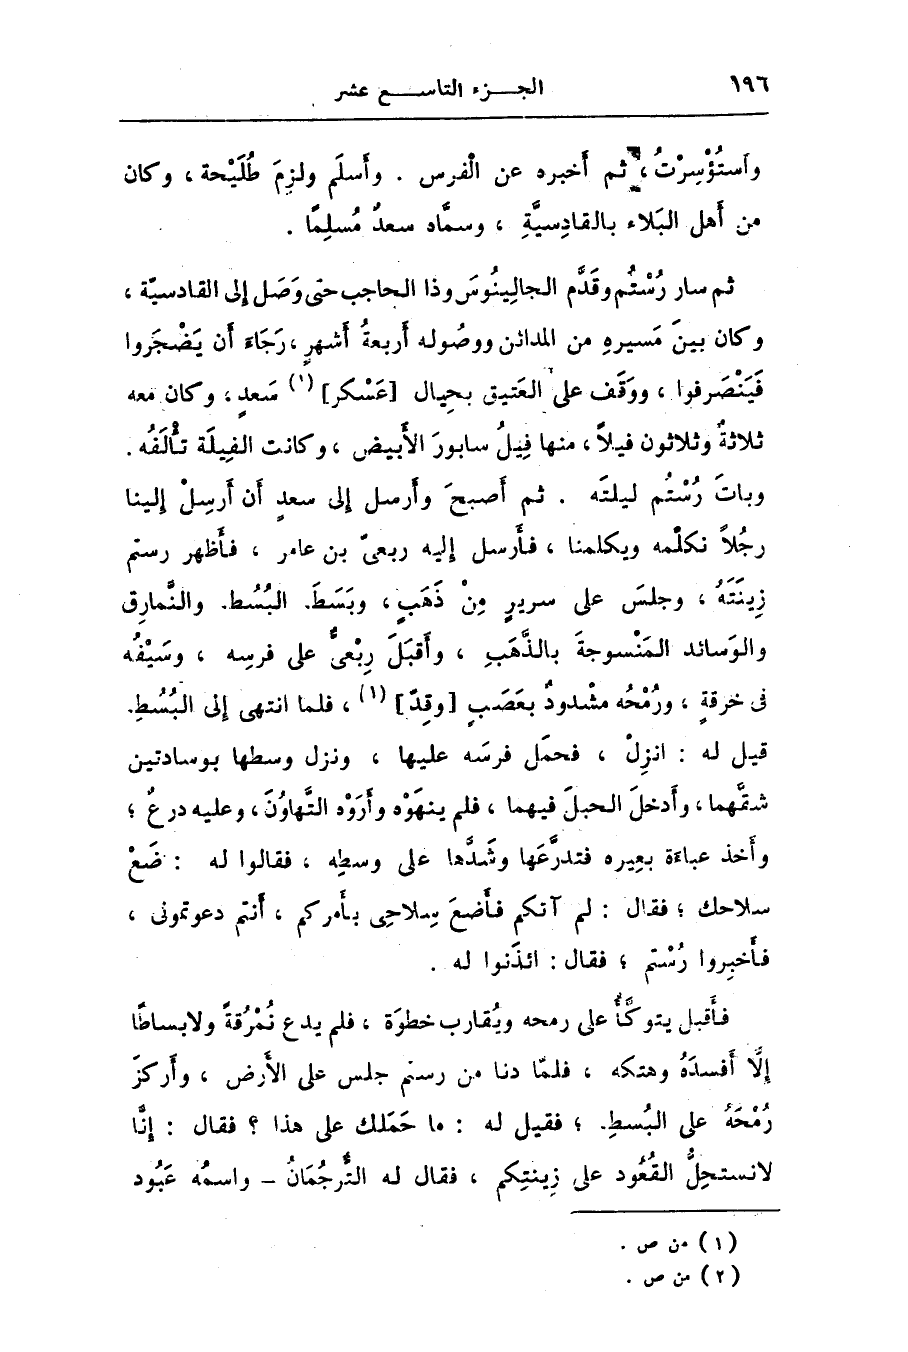 ١٩٦ الجـــزء التاســـع عشر
واَستُؤْسِرْتُ ، ثم أَخبره عن الْفرس . وأَسلَم ولزِمَ طُلَيْحة ، وكان
من أَهل البَلاء بالقادِسيَّةِ ، وسمَّاه سعدٌ مُسلِمًا .
ثم سار رُسْتُم وقَدَّم الجالِينُوسَ وذا الحاجب حتى وَصَل إلى القادسيّة ،
وكان بينَ مَسيرهِ من المدائن ووصُوله أَربعةُ أَشهرٍ ، رَجَاءَ أَن يَضْجَروا
فَيَنْصَرفوا ، ووَقَف على العَتيق بحيال [عَسْكر] (١) سَعدٍ ، وكان معه
ثلاثةٌ وثلاثون فيلاً ، منها فِيلُ سابورَ الأَبيض ، وكانت الفِيلَة تأْلَفُه .
وباتَ رُسْتُم ليلتَه . ثم أَصبحَ وأَرسل إلى سعدٍ أَن أَرسِلْ إلينا
رجُلاً نكلّمه ويكلمنا ، فأَرسل إليه ربعىّ بن عامر ، فأَظهر رستم
زِينَتَهُ ، وجلسَ على سريرٍ مِنْ ذَهَبٍ ، وبَسَطَ البُسُط والنَّمارِق
والوَسائد المَنْسوجةَ بالذَّهَبِ ، وأَقبَلَ رِبْعىٌّ على فرسِه ، وسَيْفُه
فى خرقةٍ ، ورُمْحُه مشْدودٌ بعَصَبٍ [وقِدّ] (١) ، فلما انتهى إلى البُسُطِ
قيل له : انزِلْ ، فحمَل فرسَه عليها ، ونزل وسطها بوسادتين
شقَّهما ، وأَدخلَ الحبلَ فيهما ، فلم ينهَوْه وأَرَوْه التَّهاوُنَ ، وعليه درعٌ ؛
وأَخذ عباءَة بعيره فتدرَّعَها وشَدَّها على وسطِه ، فقالوا له : ضَعْ
سلاحك ؛ فقال : لم آتكم فأَضعَ سِلاحِى بأَمركم ، أَنتم دعوتمونى ،
فأَخبِروا رُسْتم ؛ فقال : ائذَنوا له .
فأَقبل يتوكَّأُ على رمحه ويُقارب خطوَة ، فلم يدع نُمْرُقةً ولا بساطًا
إلَّا أَفسدَهُ وهتكه ، فلمّا دنا من رستم جلس على الأَرض ، وأَركزَ
رُمْحَهُ على البُسطِ ؛ فقيل له : ما حَمَلك على هذا ؟ فقال : إنَّا
لا نستحِلُّ القُعُود على زِينتِكم ، فقال له التُّرجُمَانُ – واسمُه عَبُود
(١) من ص .
(٢) من ص .